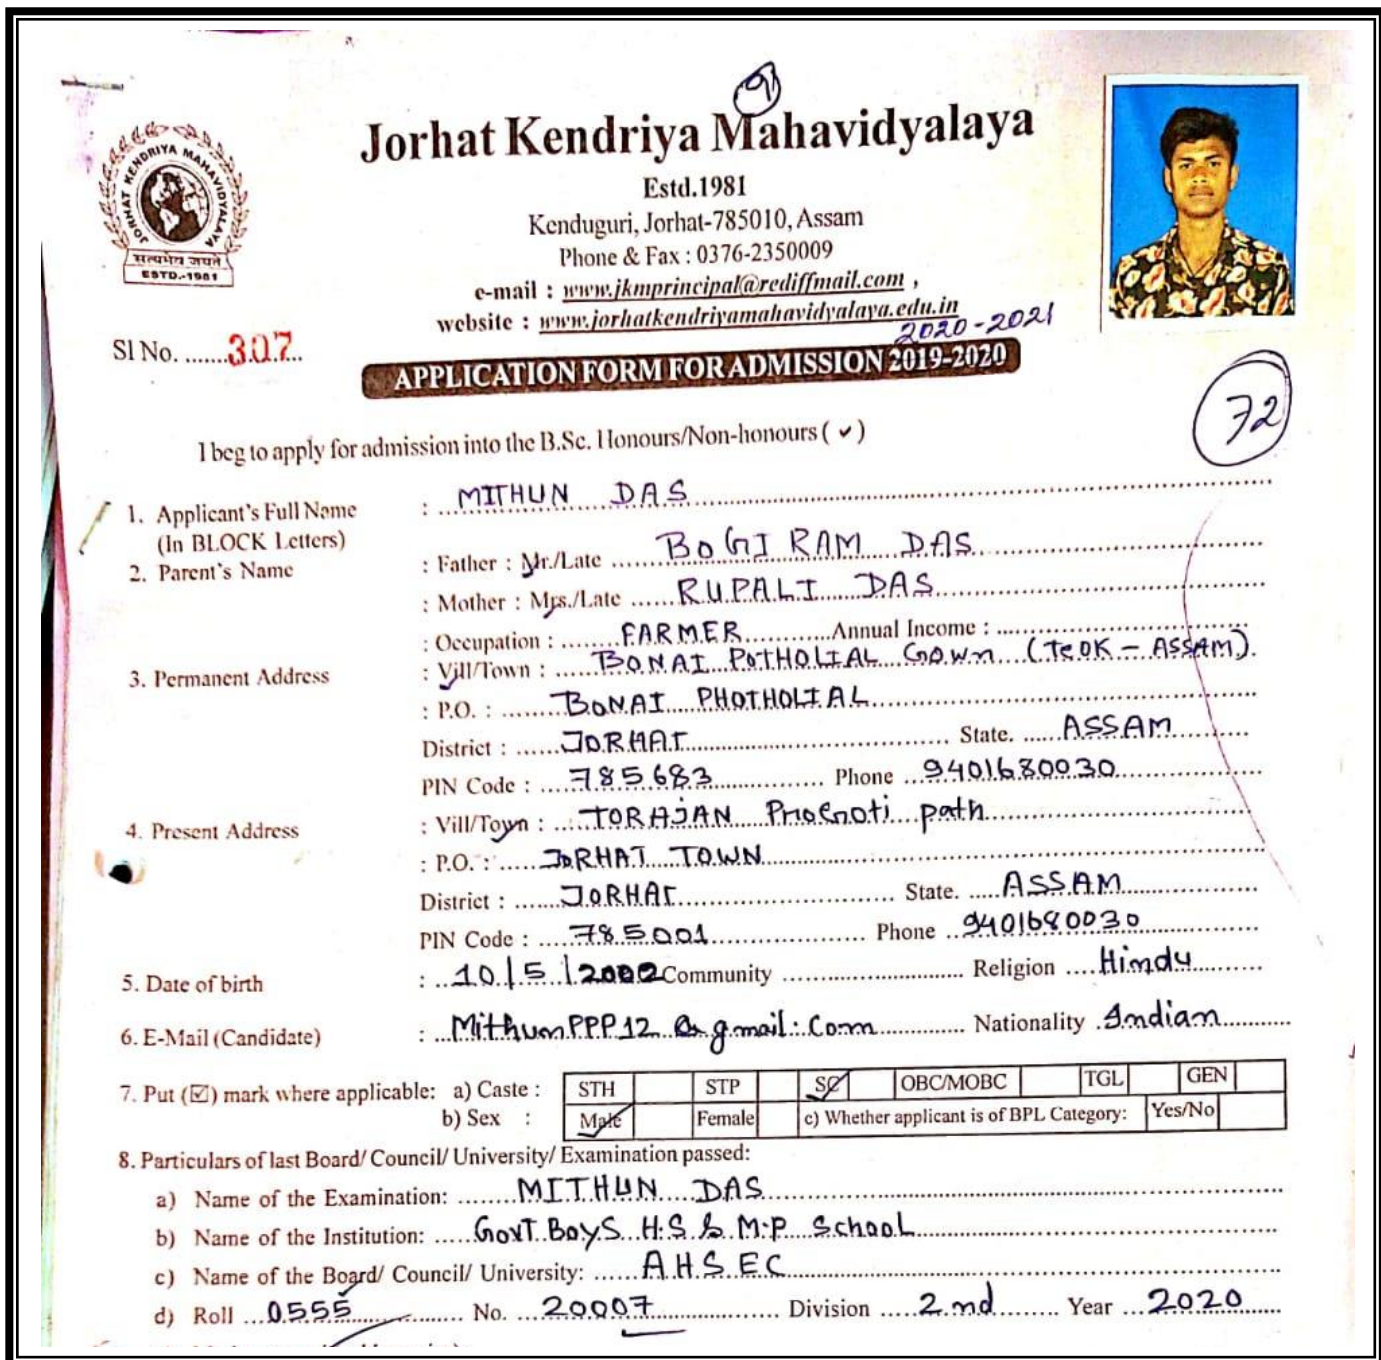 91
Jorhat Kendriya Mahavidyalaya
Estd.1981
Kenduguri, Jorhat-785010, Assam
Phone & Fax : 0376-2350009
e-mail : www.jkmprincipal@rediffmail.com ,
website : www.jorhatkendriyamahavidyalaya.edu.in
JORHAT KENDRIYA MAHAVIDYALAYA
सत्यमेव जयते
ESTD.-1981
2020-2021
Sl No. .......307..
APPLICATION FORM FOR ADMISSION 2019-2020
72
I beg to apply for admission into the B.Sc. Honours/Non-honours ( ✓ )
1. Applicant's Full Name : MITHUN DAS
(In BLOCK Letters)
2. Parent's Name : Father : Mr./Late BOGI RAM DAS
: Mother : Mrs./Late RUPALI DAS
: Occupation : FARMER Annual Income :
3. Permanent Address : Vill/Town : BONAI POTHOLIAL GOWN (TEOK - ASSAM).
: P.O. : BONAI PHOTHOLIAL
District : JORHAT State. ASSAM
PIN Code : 785683 Phone 9401680030
4. Present Address : Vill/Town : TORAJAN path
: P.O. : JORHAT TOWN
District : JORHAT State. ASSAM
PIN Code : 785001 Phone 9401680030
5. Date of birth : 10/5/2002 Community Religion Hindu
6. E-Mail (Candidate) : MithunPPP12 @ gmail.com Nationality Indian
7. Put (☑) mark where applicable: a) Caste : STH STP SC OBC/MOBC TGL GEN
b) Sex : Male Female c) Whether applicant is of BPL Category: Yes/No
8. Particulars of last Board/ Council/ University/ Examination passed:
a) Name of the Examination: MITHUN DAS
b) Name of the Institution: GovT Boys H.S & M.P School
c) Name of the Board/ Council/ University: A.H.S.E.C
d) Roll 0555 No. 20007 Division 2nd Year 2020